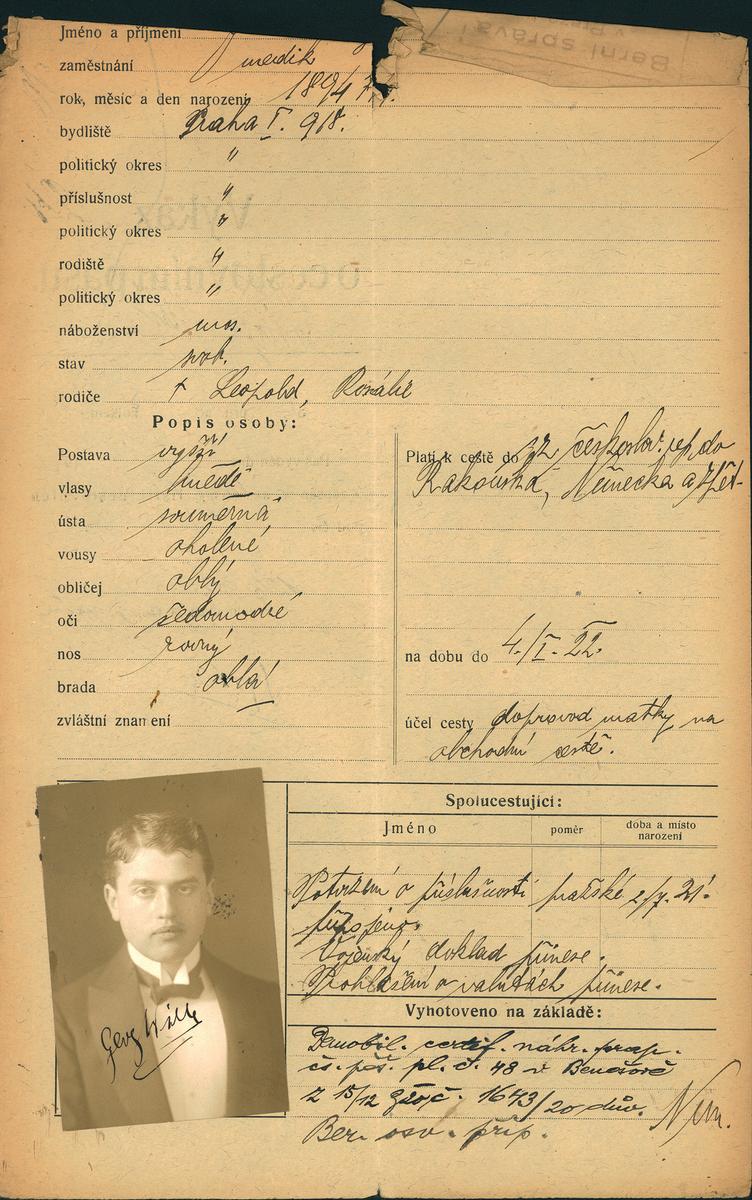 Berní správa
v Praze
Jméno a příjmení
zaměstnání medik
rok, měsíc a den narození 1894
bydliště Praha I. 918.
politický okres "
příslušnost "
politický okres "
rodiště "
politický okres "
náboženství mos.
stav svob.
rodiče † Leopold, Rosálie
Popis osoby:
Postava vyšší
vlasy hnědé
ústa souměrná
vousy oholené
obličej oblý
oči šedomodré
nos rovný
brada oblá
zvláštní znamení
Platí k cestě do z českoslov. rep. do
Rakouska, Německa a zpět
na dobu do 4./I. 22.
účel cesty doprovod matky na
obchodní cestě.
Spolucestující:
Jméno poměr doba a místo narození
Potvrzení o příslušnosti pražské 2/7. 21
připojeno.
Vojenský doklad přinese.
Prohlášení o valutách přinese.
Vyhotoveno na základě:
Demobil. certif. náhr. prap.
čs. pěš. pl. č. 48 v Benešově
z 15/12 920 č. 1643/20 dův.
Ber. osv. přip.
Georg